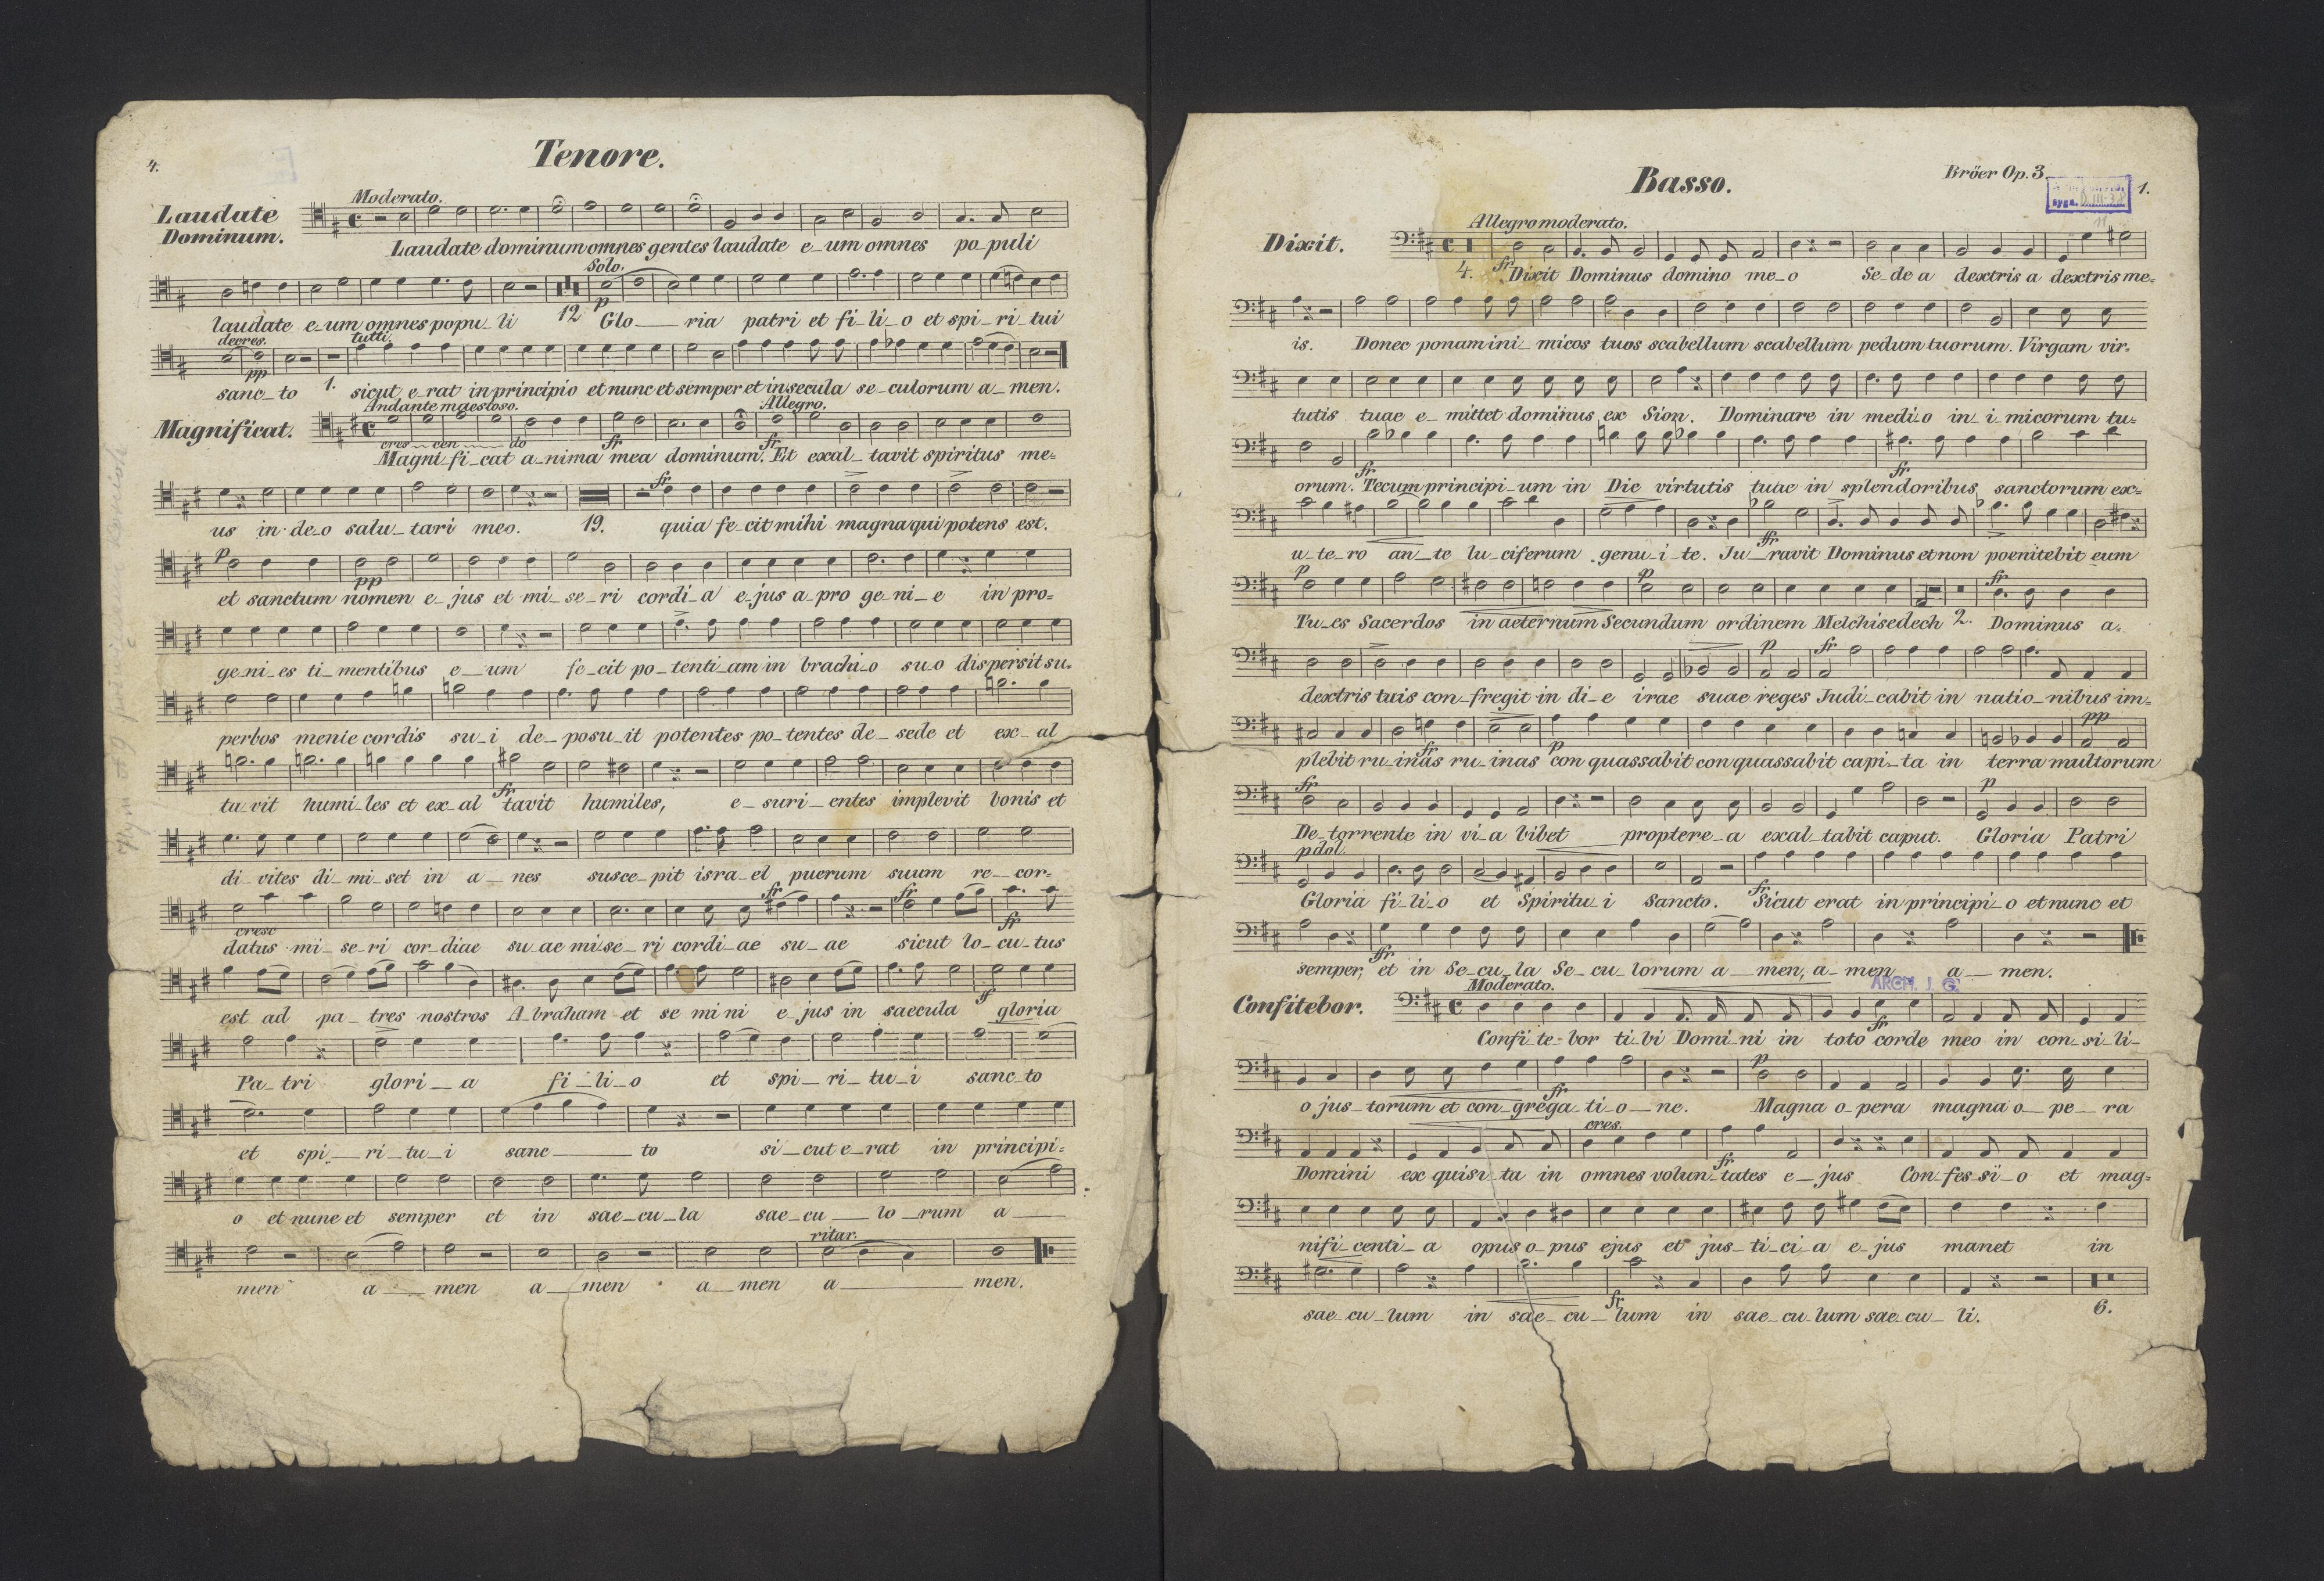 4.
Tenore.
Laudate
Dominum.
Moderato.
Laudate dominum omnes gentes laudate e_um omnes po_puli
Solo.
laudate e_um omnes popu_li 12 p Glo___ria patri et fi_li_o et spi_ri_tui
decres. tutti.
pp
sanc_to 1. sicut e_rat in principio et nunc et semper et in secula se_culorum a_men.
Magnificat.
Andante maestoso. Allegro.
cres__cen____do fr fr
Magni_fi_cat a_nima mea dominum. Et exal_tavit spiritus me=
fr
us in de_o salu_tari meo. 19. quia fe_cit mihi magna qui potens est.
p pp
et sanctum nomen e_jus et mi_se_ri cordi_a e_jus a pro ge_ni_e in pro=
ge_ni_es ti_mentibus e__um fe_cit po_tenti_am in brachi_o su_o dispersit su=
perbos mente cordis su_i de_posu_it potentes po_tentes de_sede et ex_al
fr
ta_vit humi_les et ex_al tavit humiles, e_suri_entes implevit bonis et
di_vites di_mi_set in a_nes susce_pit isra_el puerum suum re__cor=
cresc fr fr fr
datus mi_se_ri cor_diae su_ae mise_ri cordi_ae su_ae sicut lo_cu_tus
ff
est ad pa_tres nostros A_braham et se mi ni e_jus in saecula gloria
Pa_tri glori__a fi_li_o et spi_ri_tu_i sanc_to
et spi__ri_tu_i sanc____to si_cut e_rat in principi=
o et nunc et semper et in sae_cu_la sae_cu__lo_rum a___
ritar.
men a__men a__men a__men a_____men.
Basso.
Bröer Op. 3.
1.
Dixit.
Allegro moderato.
4. fr Dixit Dominus domino me_o Se_de a dextris a dextris me=
is. Donec ponam ini_micos tuos scabellum scabellum pedum tuorum. Virgam vir=
tutis tuae e_mittet dominus ex Sion. Dominare in medi_o in_i_micorum tu=
fr fr
orum. Tecum principi_um in Die virtutis tuae in splendoribus sanctorum ex=
ffr
u_te_ro an__te lu_ciferum genu_i_te. Ju__ravit Dominus et non poenitebit eum
p p fr
Tu_es Sacerdos in aeternum Secundum ordinem Melchisedech 2. Dominus a_
p fr
dextris tuis con_fregit in di_e irae suae reges Judi_cabit in natio_nibus im=
fr p pp
plebit ru_inas ru_inas con quassabit con quassabit capi_ta in terra multorum
fr p
De_torrente in vi_a bibet proptere_a exal_tabit caput. Gloria Patri
p dol. fr
Gloria fi_li_o et Spiritu_i Sancto. Sicut erat in principi_o et nunc et
ffr
semper, et in Se_cu_la Se_cu_lorum a__men, a_men a__men.
ARCH. J. G.
Confitebor.
Moderato.
fr
Confi_te_bor ti_bi Domi_ni in toto corde meo in con_si_li_
fr p
o jus_torum et con_grega_ti_o__ne. Magna o_pera magna o__pe__ra
cres. fr
Domini ex quisi_ta in omnes volun_tates e__jus Con_fes_si_o et mag=
nifi_centi_a opus o_pus ejus et jus_ti_ci_a e_jus manet in
fr
sae_cu_lum in sae_cu__lum in sae_cu_lum sae_cu_li. 6.